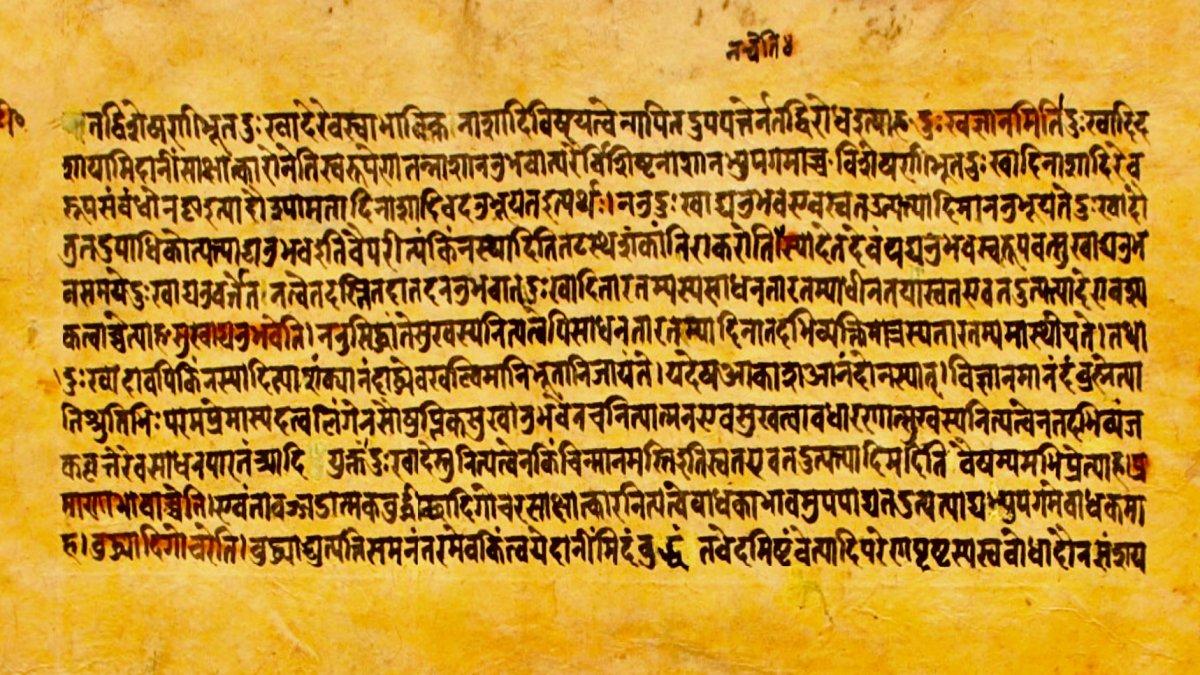 नचेतिध
टी०
नतद्विशेषणीभूतदुःखादेरेवस्वाभाविकनाशादिविषयत्वेनापितदुपपत्तेर्नतद्विरोधइत्याह दुःखज्ञानमिति दुःखादिद
शायामिदानींसाक्षात्कारोनेतिस्वरूपेणतन्नाशाननुभवात्परैर्विशिष्टनाशानभ्युपगमाच्च विशेषणीभूतदुःखादिनाशादिरेव
रूपसंबंधोनष्टइत्यादौरूपोमतादिनाशादिवदनुभूयतइत्यर्थः। ननुदुःखाद्यनुभवस्यस्वतउत्पत्त्यादिमाननुभूयतेदुःखादौ
तुतदुपाधिकोत्पत्त्याद्यनुभवइतिवैपरीत्यंकिंनस्यादितितटस्थशंकांनिराकरोति स्यादेतदेवंयद्यनुभवस्वरूपवत्सुखाद्यनुभ
वसमयेदुःखाद्यनुवर्त्तेत नत्वेतदस्तितदातदननुभवात् दुःखादितारतम्यस्यसाधनतारतम्याधीनतयास्वतएवतउत्पत्त्यादेरावश्य
कत्वाच्चेत्याह सुखाद्यनुभवेति। ननुसिद्धांतेसुखस्यनित्यत्वेपिसाधनतारतम्यादिनातदभिव्यक्तिमात्रस्यतारतम्यमास्थीयते। तथा
दुःखादावपिकिंनस्यादित्याशंक्यानंदाद्ध्येवखल्विमानिभूतानिजायंते। यदेषआकाशआनंदोनस्यात्। विज्ञानमानंदंब्रह्मेत्या
तिश्रुतिभिः परमप्रेमास्पदत्वलिंगेनसौषुप्तिकसुखानुभवेनचनित्यात्मनएवसुखत्वावधारणात्सुखस्यनित्यत्वेनतदभिव्यंज
कवृत्तेरेवसाधनपारतंत्र्यादि युक्तंदुःखादेस्तुनित्यत्वेनकिंचिन्मानमस्तिइतिस्वतएवतउत्पत्त्यादिमदिति वैषम्यमभिप्रेत्याह।प्र
माणाभावाच्चेति। एवंतावज्जडात्मकबुद्धीच्छादिगोचरसाक्षात्कारनित्यत्वेबाधकाभावमुपपाद्यतउत्पत्त्याद्यभ्युपगमेबाधकमा
ह। बुद्ध्यादिगोचरेति। बुद्ध्याद्युत्पत्तिसमनंतरमेवकिंत्वयेदानीमिदंबुद्धं तवेदमिष्टंवेत्यादिपरेणपृष्टस्यस्वबोधादौनसंशय